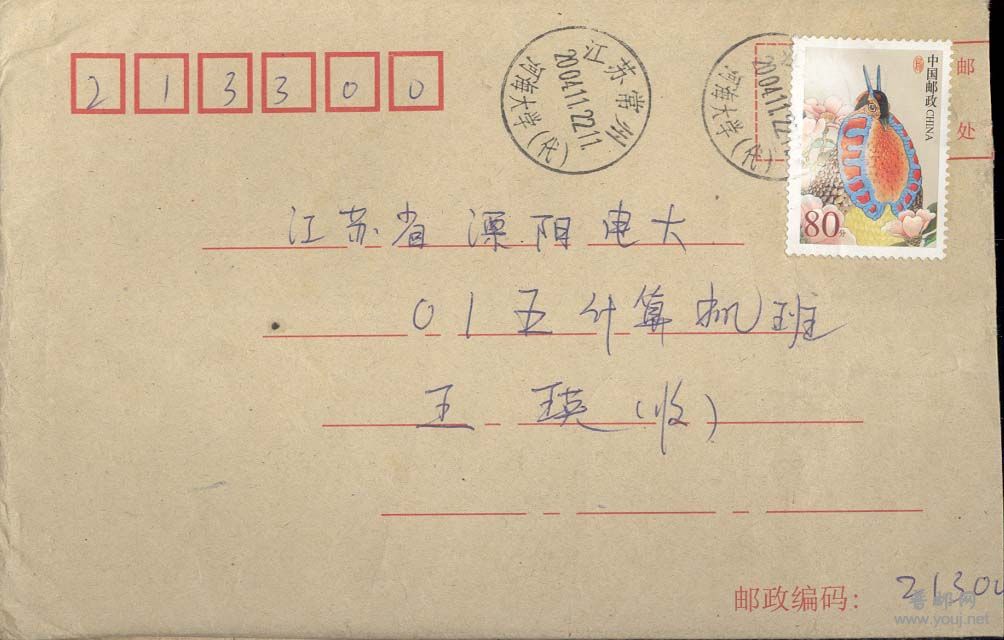 213300
江苏常州
2004.11.22.11
河海大学(代)
江苏
2004.11.22.1
河海大学(代)
邮
处
中国邮政 CHINA
80分
江苏省溧阳电大
01五计算机班
王瑛(收)
邮政编码: 2130
普邮网
www.youj.net